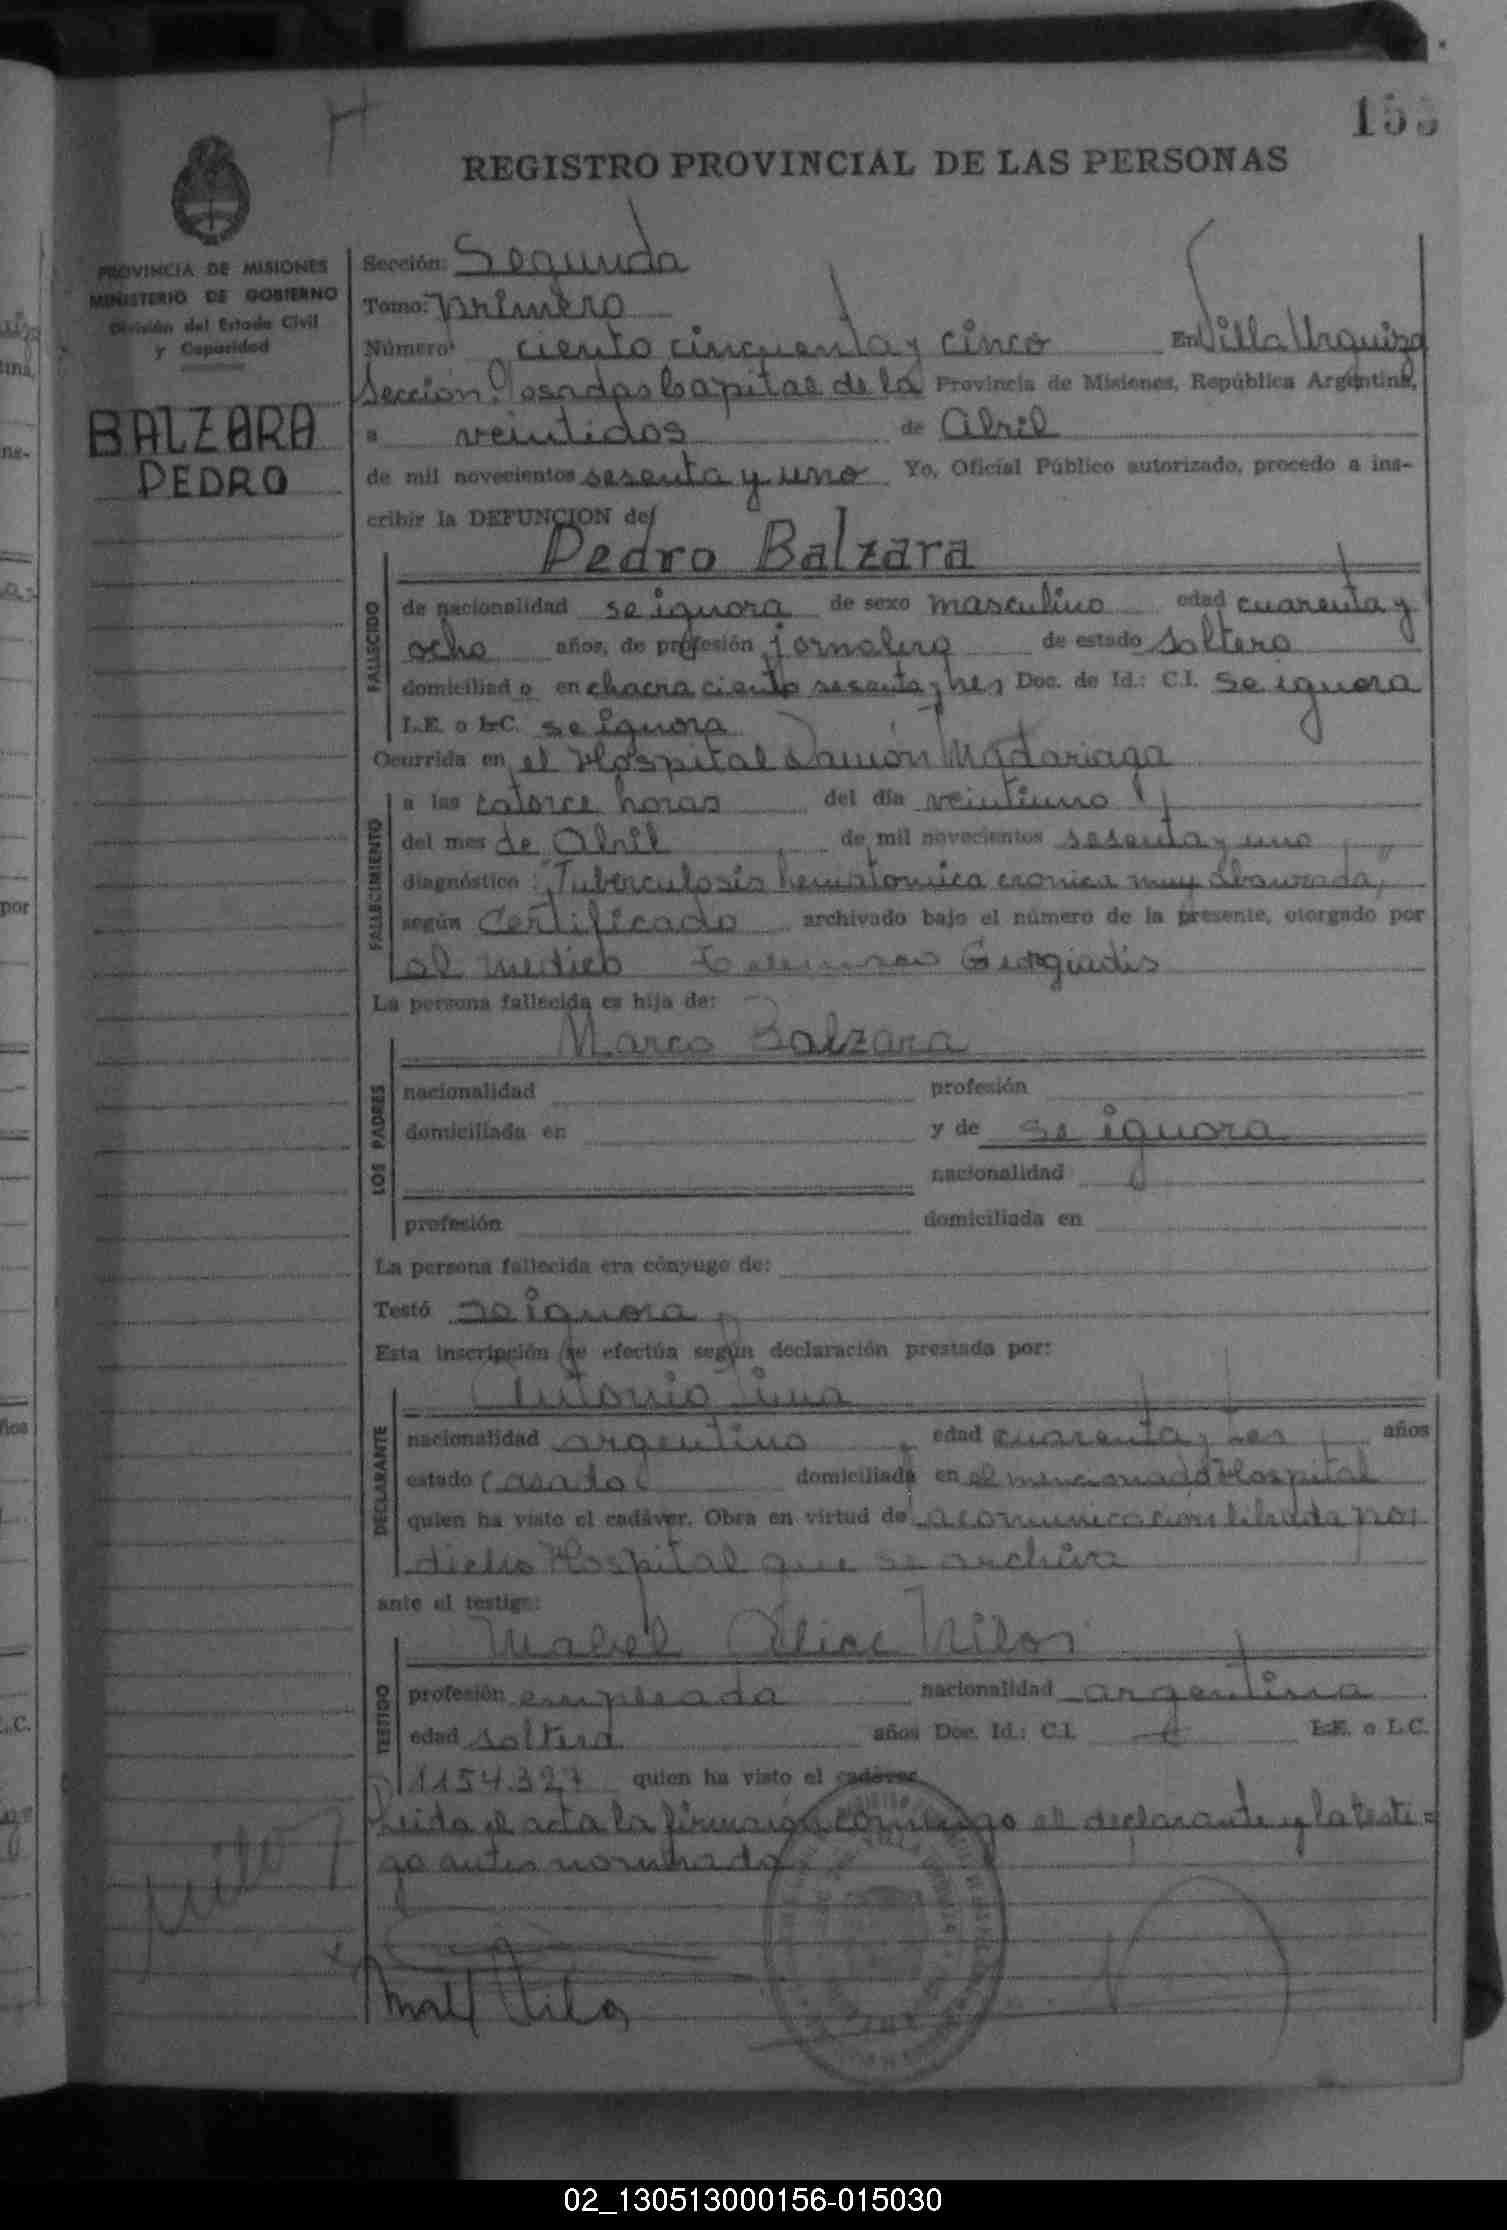 REGISTRO PROVINCIAL DE LAS PERSONAS
PROVINCIA DE MISIONES
MINISTERIO DE GOBIERNO
División del Estado Civil
y Capacidad
BALZARA
PEDRO
Sección: Segunda
Tomo: primero
Número: ciento cincuenta y cinco En Villa Urquiza
Sección Posadas Capital de la Provincia de Misiones, República Argentina,
a veintidos de Abril
de mil novecientos sesenta y uno Yo, Oficial Público autorizado, procedo a ins-
cribir la DEFUNCION de
Pedro Balzara
FALLECIDO
de nacionalidad se ignora de sexo masculino edad cuarenta y
ocho años, de profesión jornalero de estado soltero
domiciliado en chacra ciento sesenta y tres Doc. de Id.: C.I. se ignora
L.E. o L.C. se ignora
Ocurrida en el Hospital Ramón Madariaga
FALLECIMIENTO
a las catorce horas del día veintiuno
del mes de Abril de mil novecientos sesenta y uno
diagnóstico "Tuberculosis cronica muy
según Certificado archivado bajo el número de la presente, otorgado por
el medico Georgiadis
La persona fallecida es hija de:
Marco Balzara
LOS PADRES
nacionalidad profesión
domiciliada en y de se ignora
nacionalidad
profesión domiciliada en
La persona fallecida era cónyuge de:
Testó se ignora
Esta inscripción se efectúa según declaración prestada por:
Antonio
DECLARANTE
nacionalidad argentino edad cuarenta y tres años
estado casado domiciliada en el mencionado Hospital
quien ha visto el cadáver. Obra en virtud de la comunicación librada por
dicho Hospital que se archiva
ante el testigo:
Mabel
TESTIGO
profesión empleada nacionalidad argentina
edad soltera años Doc. Id.: C.I. L.E. o L.C.
1154.327 quien ha visto el cadáver
Leida el acta la firman conmigo el declarante y la testi=
go antes nombrado
02_130513000156-015030